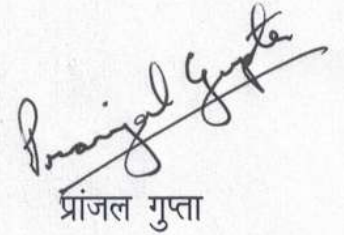 Pranjal Gupta
प्रांजल गुप्ता